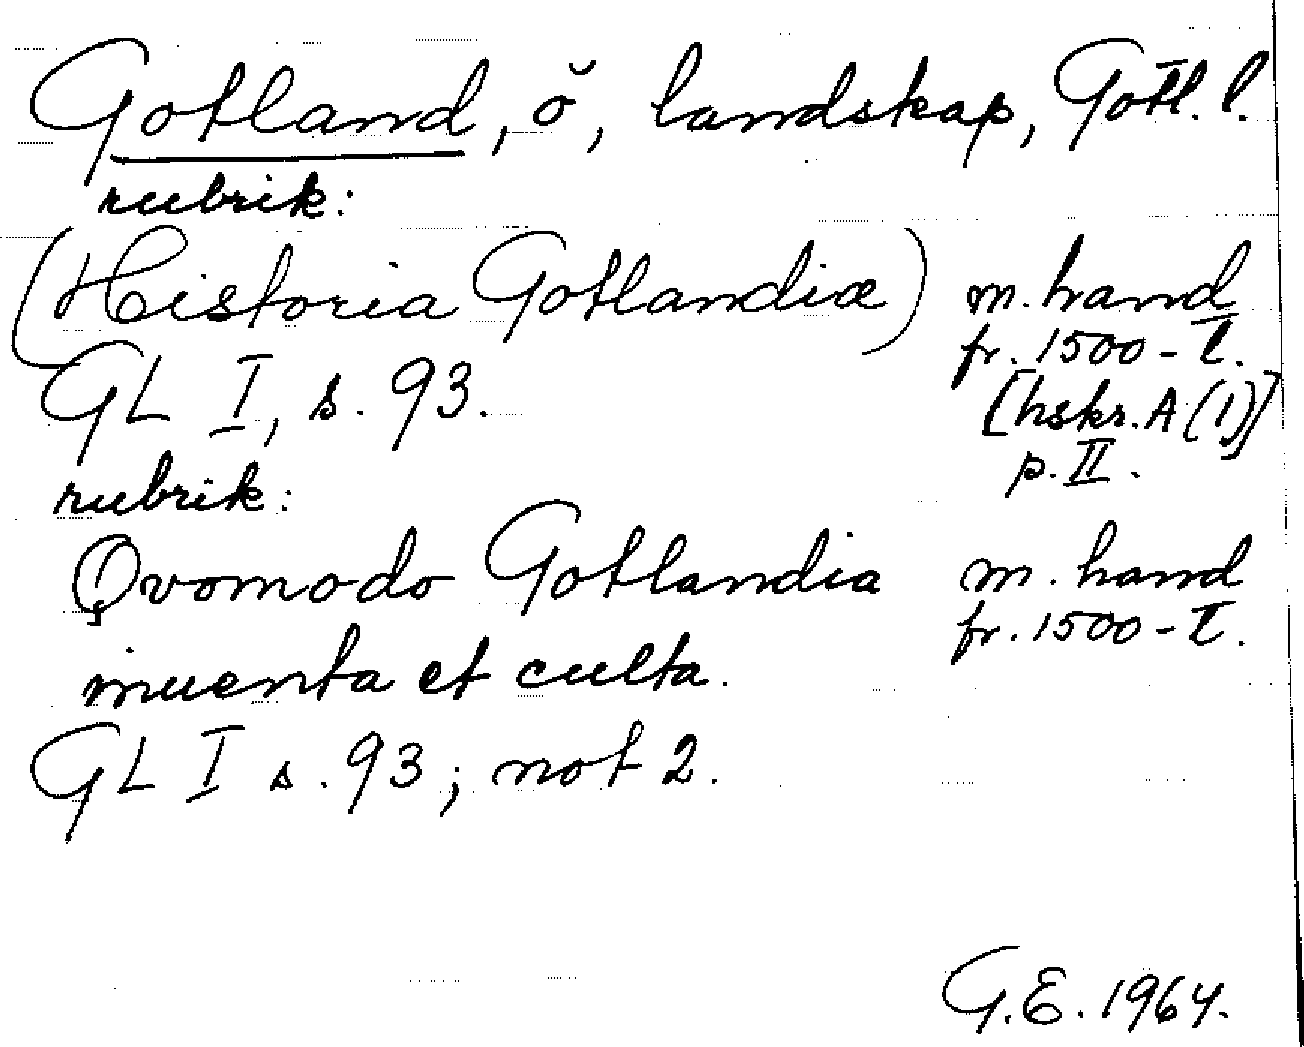 Gotland, ö, landskap, Gotl. l.
rubrik:
(Historia Gotlandiæ) m. hand
fr. 1500-t.
GL I, s. 93. [hskr. A (1)]
p. II.
rubrik:
Qvomodo Gotlandia m. hand
fr. 1500-t.
inuenta et culta.
GL I s. 93; not 2.
G.E. 1964.